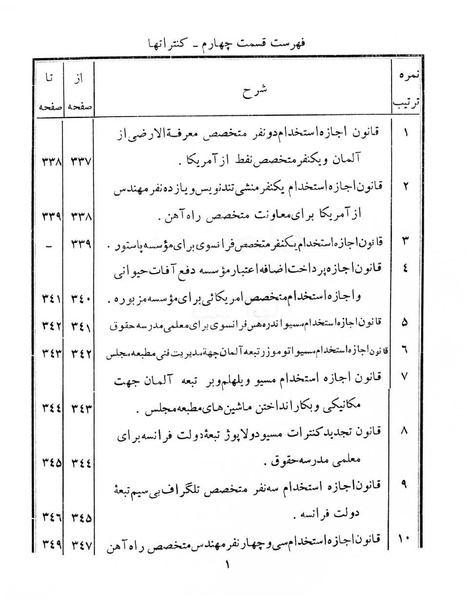 فهرست قسمت چهارم ـ کنتراتها
نمره ترتیب شرح از صفحه تا صفحه
۱ قانون اجازه استخدام دو نفر متخصص معرفة‌الارضی از
آلمان و یکنفر متخصص نفط از آمریکا . ۳۳۷ ۳۳۸
۲ قانون اجازه استخدام یکنفر منشی تند نویس و یازده نفر مهندس
از آمریکا برای معاونت متخصص راه آهن . ۳۳۸ ۳۳۹
۳ قانون اجازه استخدام یکنفر متخصص فرانسوی برای مؤسسه پاستور . ۳۳۹ –
۴ قانون اجازه پرداخت اضافه اعتبار مؤسسه دفع آفات حیوانی
و اجازه استخدام متخصص امریکائی برای مؤسسه مزبوره . ۳۴۰ ۳۴۱
۵ قانون اجازه استخدام مسیو اندره هس فرانسوی برای معلمی مدرسه حقوق ۳۴۱ ۳۴۲
۶ قانون اجازه استخدام مسیو اتو موزر تبعه آلمان جهة مدیریت فنی مطبعه مجلس ۳۴۲ ۳۴۳
۷ قانون اجازه استخدام مسیو ویلهلم وبر تبعه آلمان جهت
مکانیکی و بکار انداختن ماشین های مطبعه مجلس . ۳۴۳ ۳۴۴
۸ قانون تجدید کنترات مسیو دولاپوژ تبعهٔ دولت فرانسه برای
معلمی مدرسه حقوق . ۳۴۴ ۳۴۵
۹ قانون اجازه استخدام سه نفر متخصص تلگراف بی سیم تبعهٔ
دولت فرانسه . ۳۴۵ ۳۴۶
۱۰ قانون اجازه استخدام سی و چهار نفر مهندس متخصص راه آهن ۳۴۷ ۳۴۹
۱